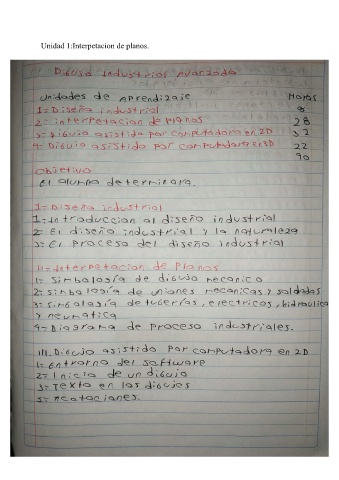 Unidad 1:Interpetacion de planos.
Dibujo Industrial Avanzado
Unidades de Aprendizaje Horas
1= Diseño industrial 8
2= interpretacion de Planos 28
3= Dibujo asistido por computadora en 2D 32
4= Dibujo asistido por computadora en 3D 22
90
Objetivo
El alumno determinara.
I= Diseño industrial
1= Introduccion al diseño industrial
2= El diseño industrial y la naturaleza
3= El Proceso del diseño industrial
II= Interpretacion de Planos
1= Simbología de dibujo mecanico
2= simbología de uniones mecanicas y soldadas
3= Simbología de tuberías, electricos, hidraulica
y neumatica
4= Diagrama de Proceso industriales.
III. Dibujo asistido por computadora en 2D
1= entrorno del software
2= Inicio de un dibujo
3= Texto en los dibujos
5= Acotaciones.